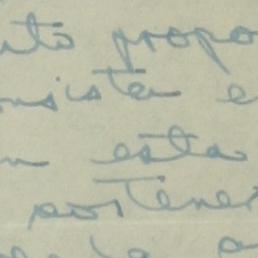 nto propo
nsista e
n esta
por tener